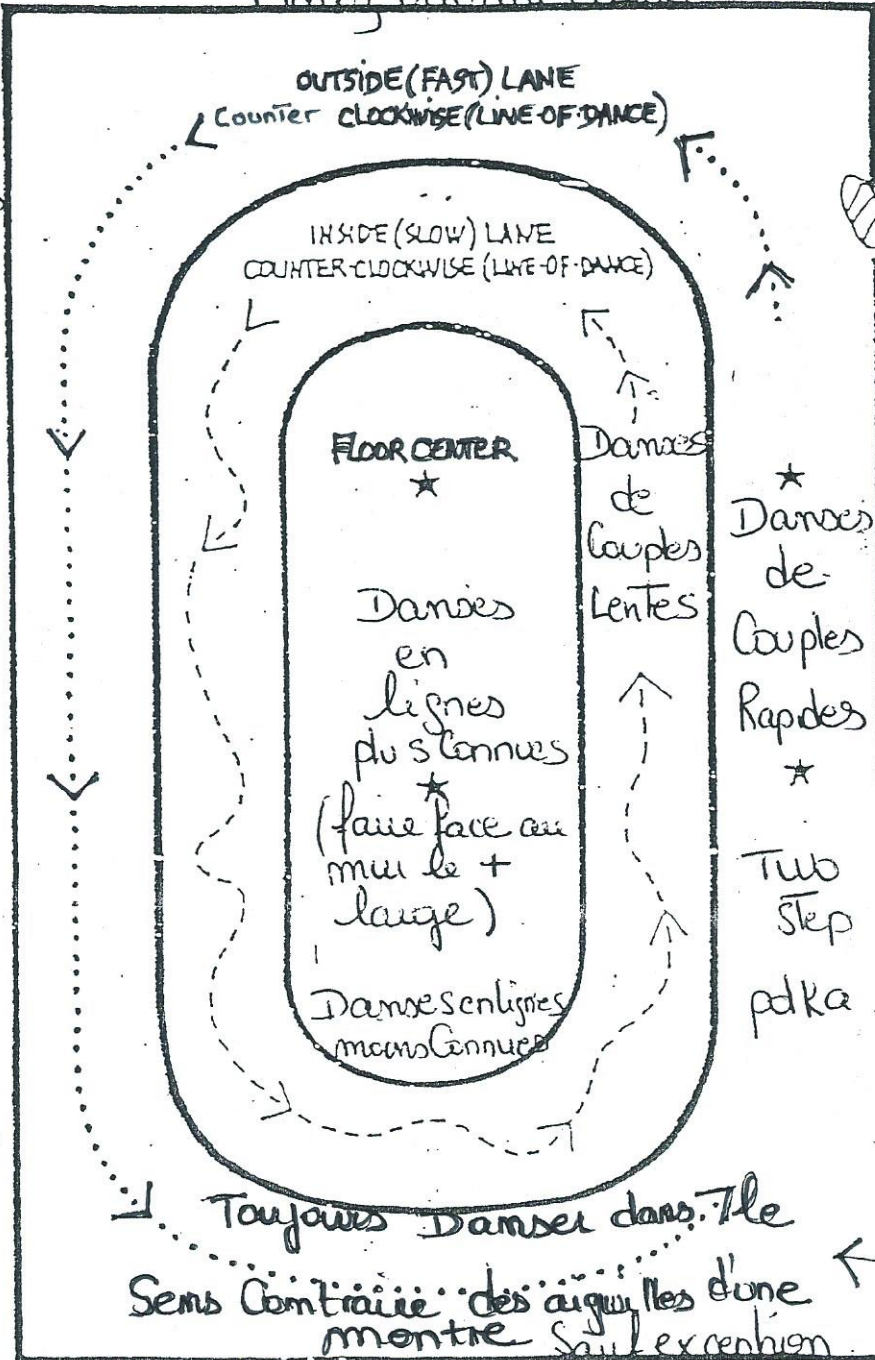 OUTSIDE (FAST) LANE
Counter CLOCKWISE (LINE-OF-DANCE)
INSIDE (SLOW) LANE
COUNTER-CLOCKWISE (LINE-OF-DANCE)
FLOOR CENTER
Danses
en
lignes
plus Connues
(faire face au
mur le +
large)
Danses en lignes
moins Connues
Danses
de
Couples
Lentes
Danses
de
Couples
Rapides
Two
Step
polka
Toujours Danser dans le
Sens Contraire des aiguilles d'une
montre Sauf exception